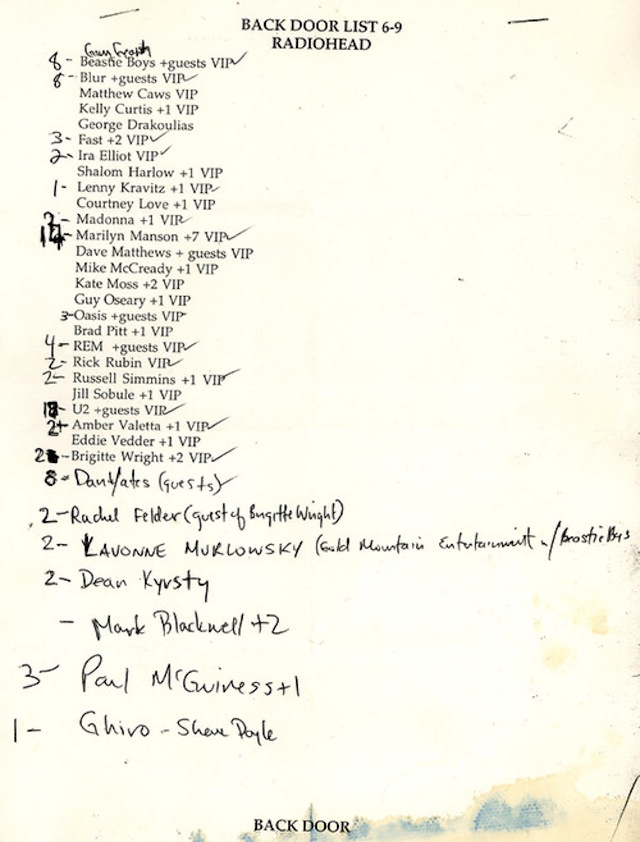 BACK DOOR LIST 6-9
RADIOHEAD
8- Beastie Boys +guests VIP✓
8- Blur +guests VIP✓
Matthew Caws VIP
Kelly Curtis +1 VIP
George Drakoulias
3- Fast +2 VIP✓
2- Ira Elliot VIP✓
Shalom Harlow +1 VIP
1- Lenny Kravitz +1 VIP✓
Courtney Love +1 VIP
2- Madonna +1 VIP✓
Marilyn Manson +7 VIP✓
Dave Matthews + guests VIP
Mike McCready +1 VIP
Kate Moss +2 VIP
Guy Oseary +1 VIP
3-Oasis +guests VIP
Brad Pitt +1 VIP
4- REM +guests VIP✓
2- Rick Rubin VIP✓
2- Russell Simmins +1 VIP✓
Jill Sobule +1 VIP
U2 +guests VIP✓
2- Amber Valetta +1 VIP✓
Eddie Vedder +1 VIP
2 -Brigitte Wright +2 VIP✓
8- (guests)✓
2-Rachel Felder (guest of Brigitte Wright)
2- LAVONNE MURLOWSKY (Gold Mountain Entertainment w/Beastie Boys
2- Dean Kyrsty
- Mark Blackwell +2
3- Paul McGuiness+1
1- Ghiro - Shane Doyle
BACK DOOR